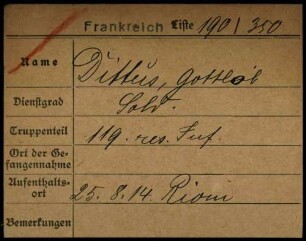 Frankreich Liste 190 / 350
Name Dittus, Gottlob
Dienstgrad Sold.
Truppenteil 119. res. Inf.
Ort der Ge-
fangennahme
Aufenthalts-
ort 25. 8. 14. Riom
Bemerkungen